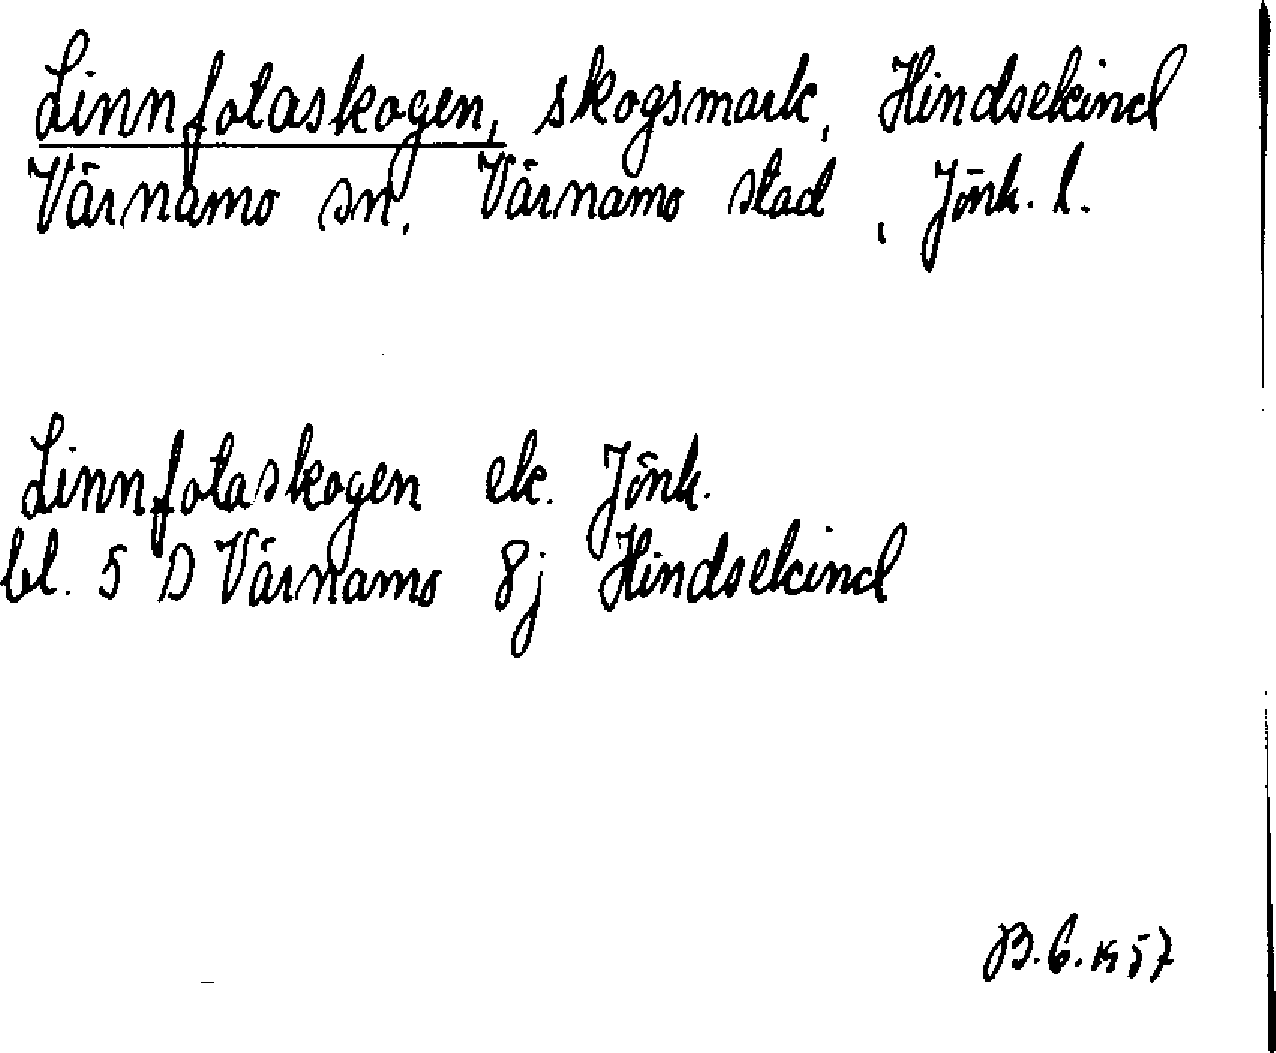 Linnfotaskogen, skogsmark, Hindsekind
Värnamo sn, Värnamo stad, Jönk. l.
Linnfotaskogen ek. Jönk.
bl. 5 D Värnamo 8j Hindsekind